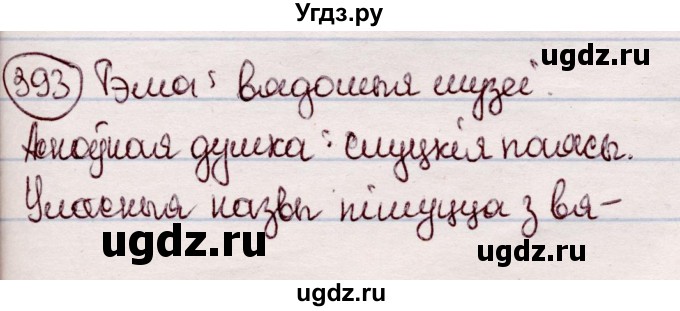 Угдз.ру
ugdz.ru
393 Тэма: вядомыя музеі.
Асноўная думка: слуцкія паясы.
Уласныя назвы пішуцца з вя-
ugdz.ru
ugdz.ru
ugdz.ru
ugdz.ru